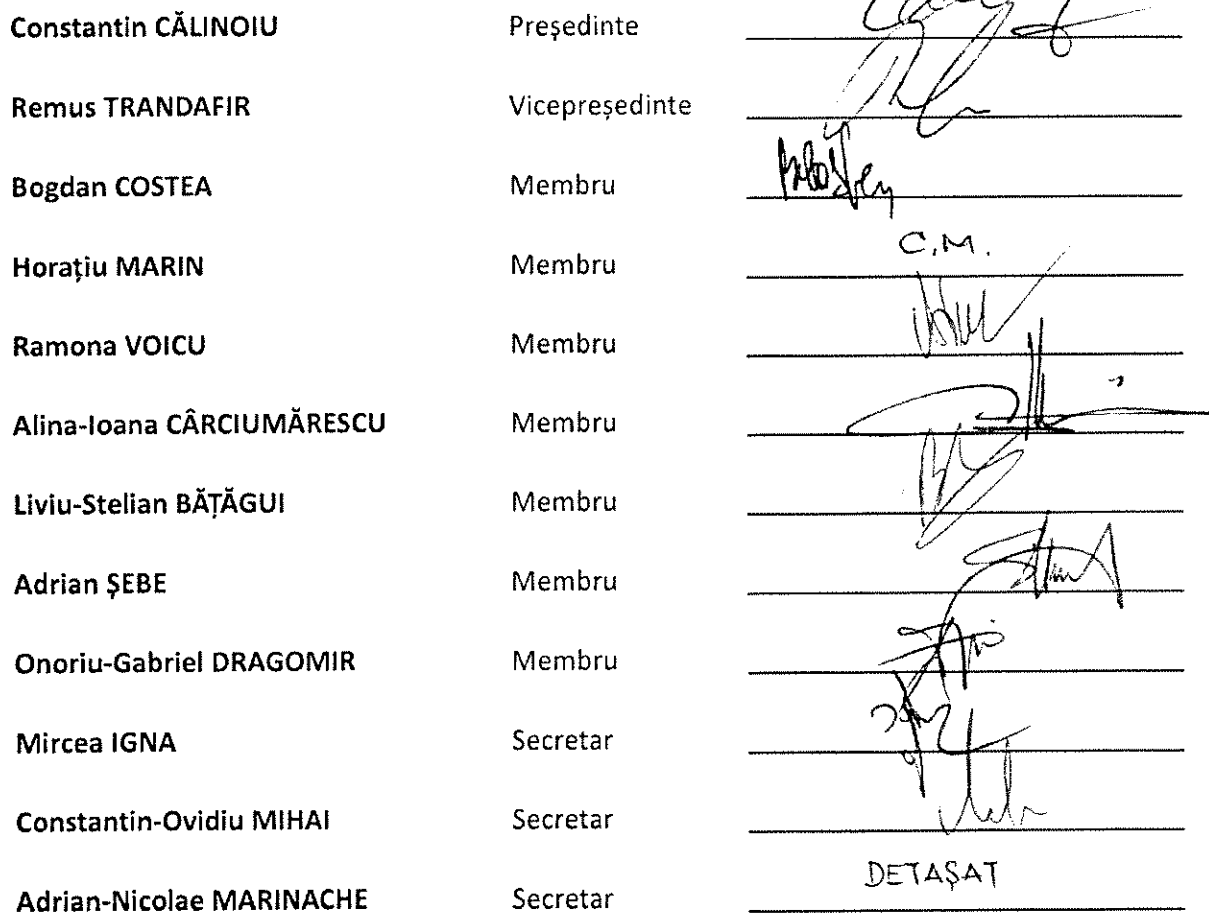 Constantin CĂLINOIU Președinte
Remus TRANDAFIR Vicepreședinte
Bogdan COSTEA Membru
Horațiu MARIN Membru C.M.
Ramona VOICU Membru
Alina-Ioana CÂRCIUMĂRESCU Membru
Liviu-Stelian BĂȚĂGUI Membru
Adrian ȘEBE Membru
Onoriu-Gabriel DRAGOMIR Membru
Mircea IGNA Secretar
Constantin-Ovidiu MIHAI Secretar
Adrian-Nicolae MARINACHE Secretar DETAȘAT